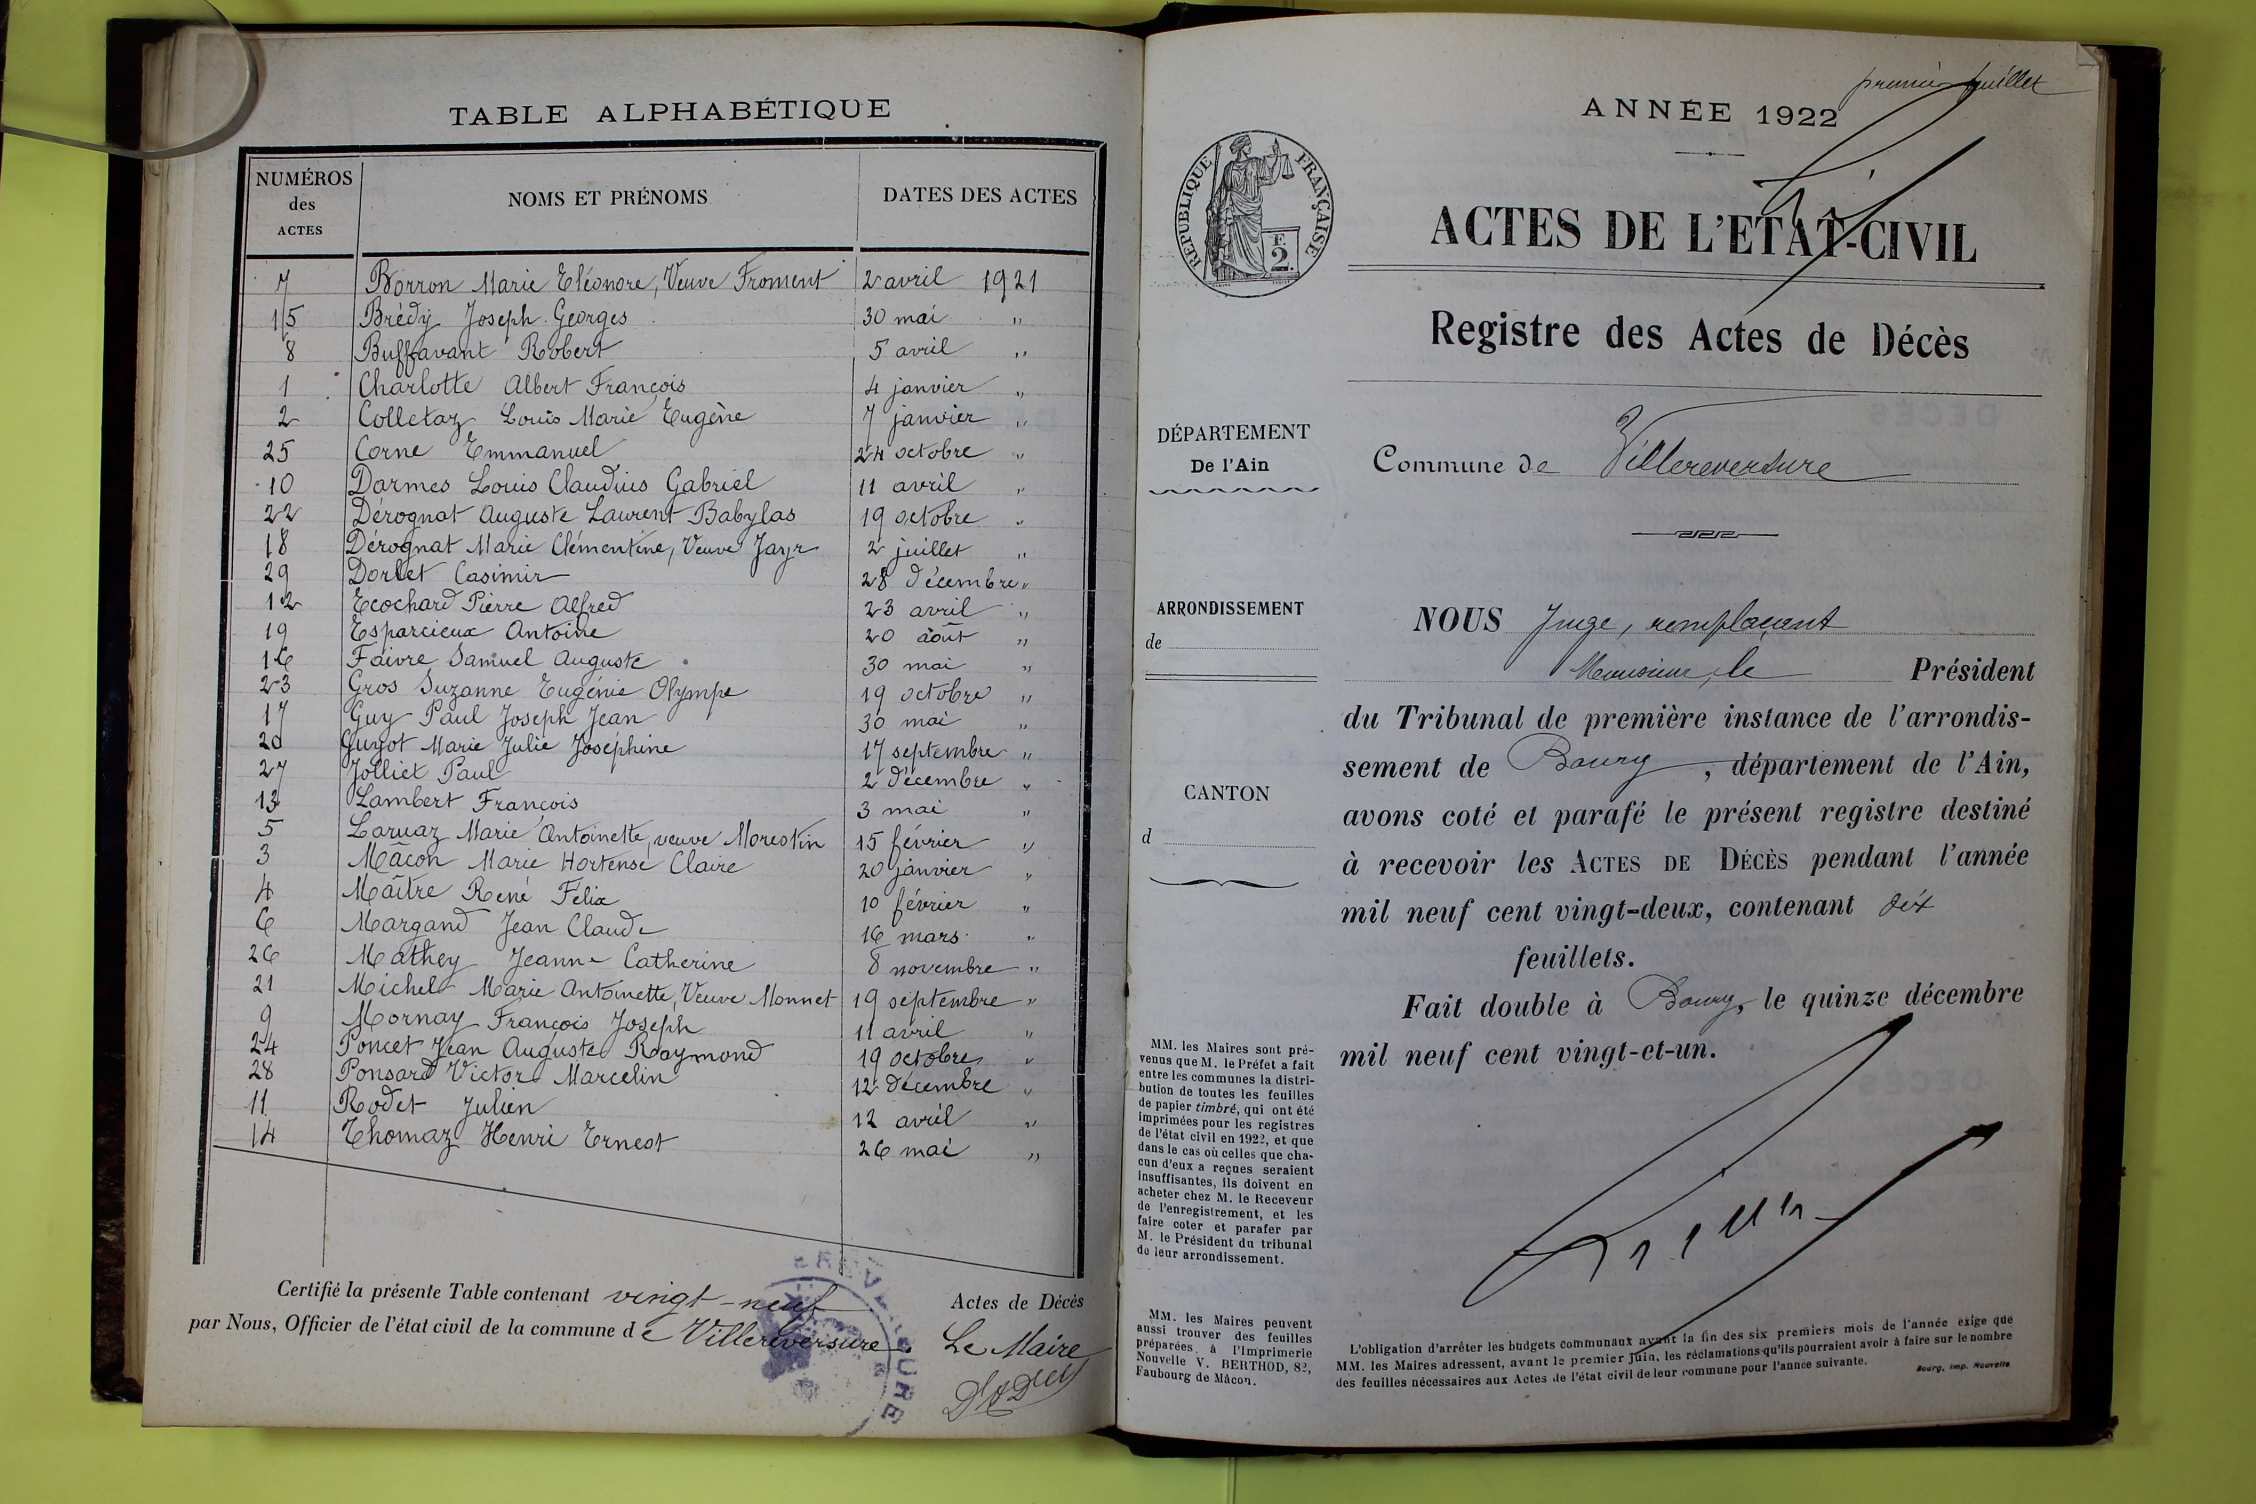 TABLE ALPHABÉTIQUE
NUMÉROS des ACTES NOMS ET PRÉNOMS DATES DES ACTES
7 Borron Marie Eléonore, Veuve Froment 2 avril 1921
15 Brédy Joseph Georges 30 mai "
8 Buffavant Robert 5 avril "
1 Charlotte Albert François 4 janvier "
2 Colletaz Louis Marie Eugène 7 janvier "
25 Corne Emmanuel 24 octobre "
10 Darmes Louis Claudius Gabriel 11 avril "
22 Dérognat Auguste Laurent Babylas 19 octobre "
18 Dérognat Marie Clémentine, Veuve Jayr 2 juillet "
29 Dorlet Casimir 28 décembre "
12 Ecochard Pierre Alfred 23 avril "
19 Esparcieux Antoine 20 août "
16 Faivre Samuel Auguste 30 mai "
23 Gros Suzanne Eugénie Olympe 19 octobre "
17 Guy Paul Joseph Jean 30 mai "
20 Guyot Marie Julie Joséphine 17 septembre "
27 Jolliet Paul 2 décembre "
13 Lambert François 3 mai "
5 Laruaz Marie Antoinette, veuve Morestin 15 février "
3 Mâcon Marie Hortense Claire 20 janvier "
4 Maître René Félix 10 février "
6 Margand Jean Claude 16 mars "
26 Mathey Jeanne Catherine 8 novembre "
21 Michel Marie Antoinette, Veuve Monnet 19 septembre "
9 Mornay François Joseph 11 avril "
24 Poncet Jean Auguste Raymond 19 octobre "
28 Ponsard Victor Marcelin 12 décembre "
11 Rodet Julien 12 avril "
14 Thomaz Henri Ernest 26 mai "
Certifié la présente Table contenant vingt-neuf Actes de Décès
par Nous, Officier de l'état civil de la commune de Villereversure. Le Maire
premier feuillet
ANNÉE 1922
RÉPUBLIQUE FRANÇAISE
F. 2.
ACTES DE L'ETAT-CIVIL
Registre des Actes de Décès
DÉPARTEMENT
De l'Ain
Commune de Villereversure
ARRONDISSEMENT
de
CANTON
d
NOUS Juge, remplaçant
Monsieur le Président
du Tribunal de première instance de l'arrondis-
sement de Bourg, département de l'Ain,
avons coté et parafé le présent registre destiné
à recevoir les ACTES DE DÉCÈS pendant l'année
mil neuf cent vingt-deux, contenant dix
feuillets.
Fait double à Bourg, le quinze décembre
mil neuf cent vingt-et-un.
MM. les Maires sont pré-
venus que M. le Préfet a fait
entre les communes la distri-
bution de toutes les feuilles
de papier timbré, qui ont été
imprimées pour les registres
de l'état civil en 1922, et que
dans le cas où celles que cha-
cun d'eux a reçues seraient
insuffisantes, ils doivent en
acheter chez M. le Receveur
de l'enregistrement, et les
faire coter et parafer par
M. le Président du tribunal
de leur arrondissement.
MM. les Maires peuvent
aussi trouver des feuilles
préparées à l'Imprimerie
Nouvelle V. BERTHOD, 82,
Faubourg de Mâcon.
L'obligation d'arrêter les budgets communaux avant la fin des six premiers mois de l'année exige que
MM. les Maires adressent, avant le premier juin, les réclamations qu'ils pourraient avoir à faire sur le nombre
des feuilles nécessaires aux Actes de l'état civil de leur commune pour l'année suivante.
Bourg, Imp. Nouvelle